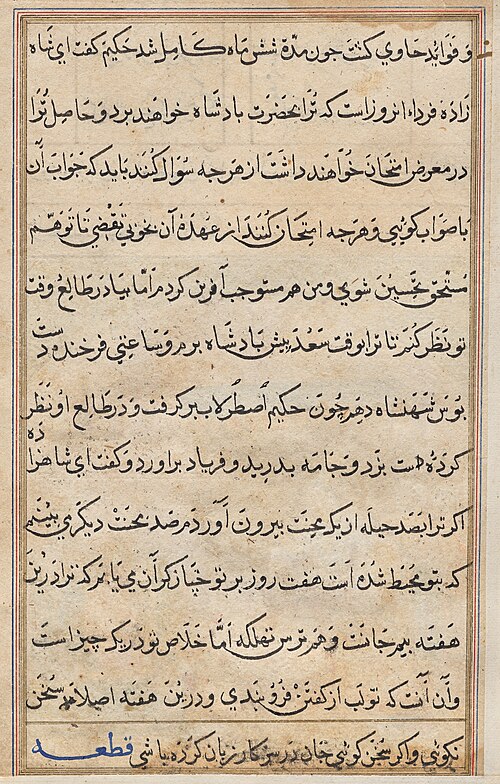 و فوائد حاوي کشت چون مدّة شش ماه کامل شد حکیم کفت ای شاه
زاده فرداء از روز است که ترا بحضرت بادشاه خواهند برد و حاصل ترا
در معرض امتحان خواهند داشت از هرجه سؤال کنند باید که جواب آن
باصواب کوئي و هرجه امتحان کنند از عهده آن بخوبي تقضي تا توهم
مستحق تحسین شوي و من هم مستوجب آفرین کردم امّا بیا در طالع وقت
تو نظر کنم تا ترا بوقت سعد پیش بادشاه برم و ساعتي فرخنده دست
بوس شهنشاه دهر چون حکیم اصطرلاب بر کرفت و در طالع او نظر
کرد دست بزد و جامه بدرید و فریاد براورد و کفت ای شاهزاده
اکر ترا بصد حیله از یک محنت بیرون آوردم صد محنت دیکري بینم
که بتو محیط شده است هفت روز بر تو خیاز کران مي یابم که ترا درین
هفته بیم جانست و هم ترس تهلکه امّا خلاص تو در یک چیز است
و آن آنست که تو لب از کفتن فرو بندي و درین هفته اصلا هم سخن
نکوئي و اکر سخن کوئي جان در سر کار زبان کرده باشي قطعه